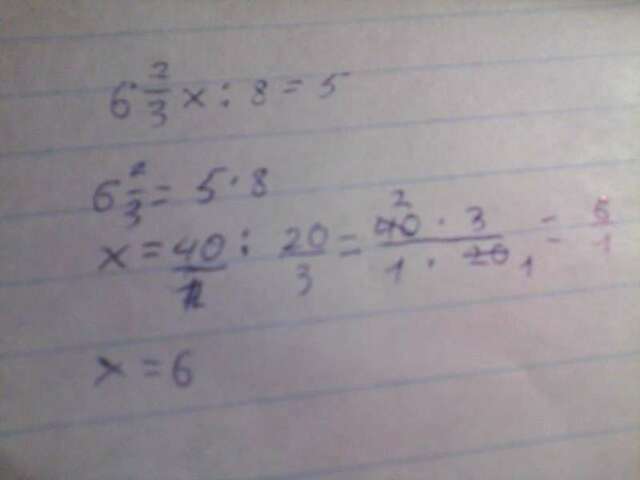 6 2/3 x : 8 = 5
6 2/3 = 5 · 8
x = 40/1 : 20/3 = 40 2 · 3 / 1 · 20 1 = 6/1
x = 6